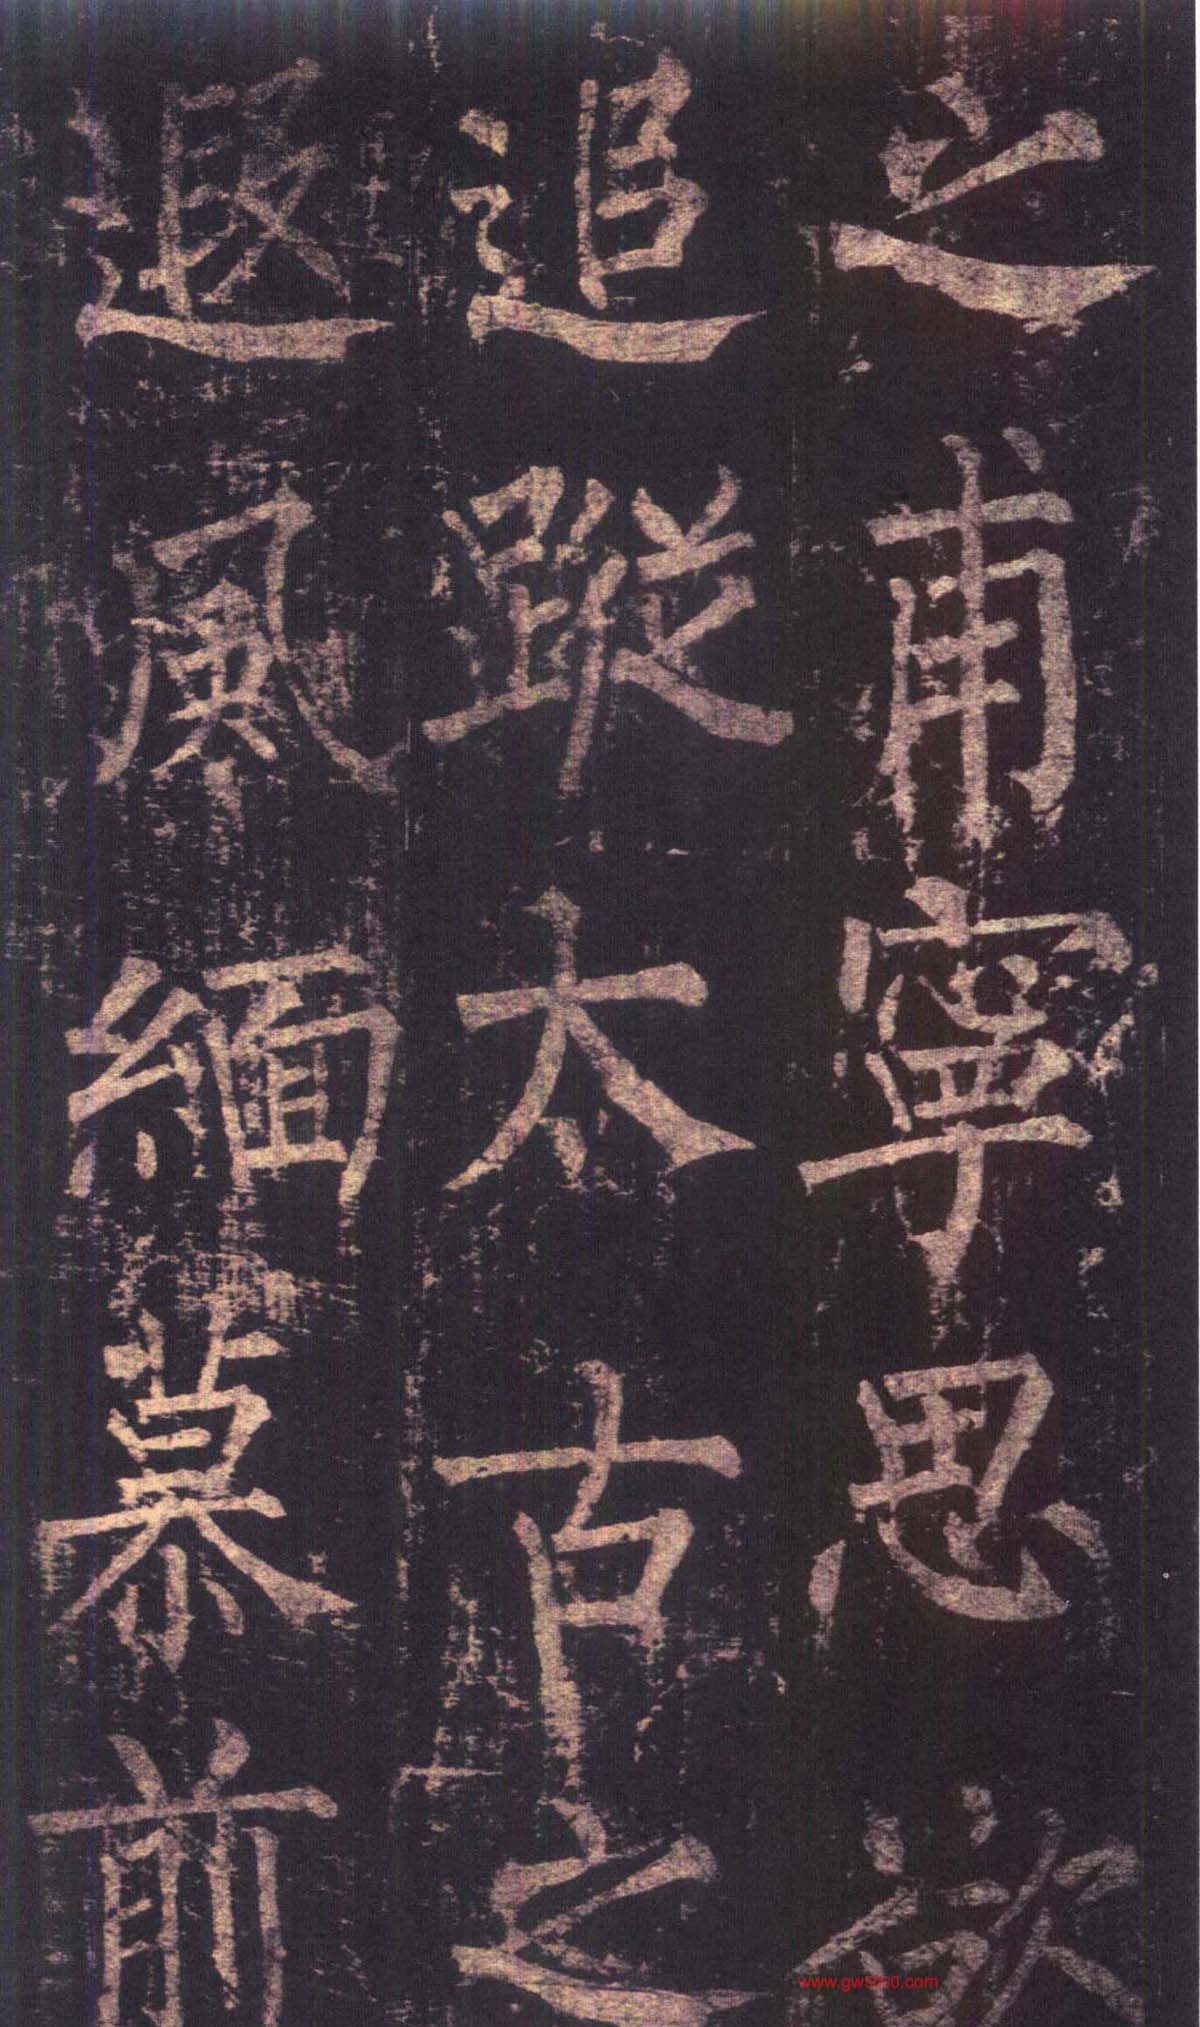 之甫寧思欲
追蹤太古之
遐風緬慕前
www.gw5000.com